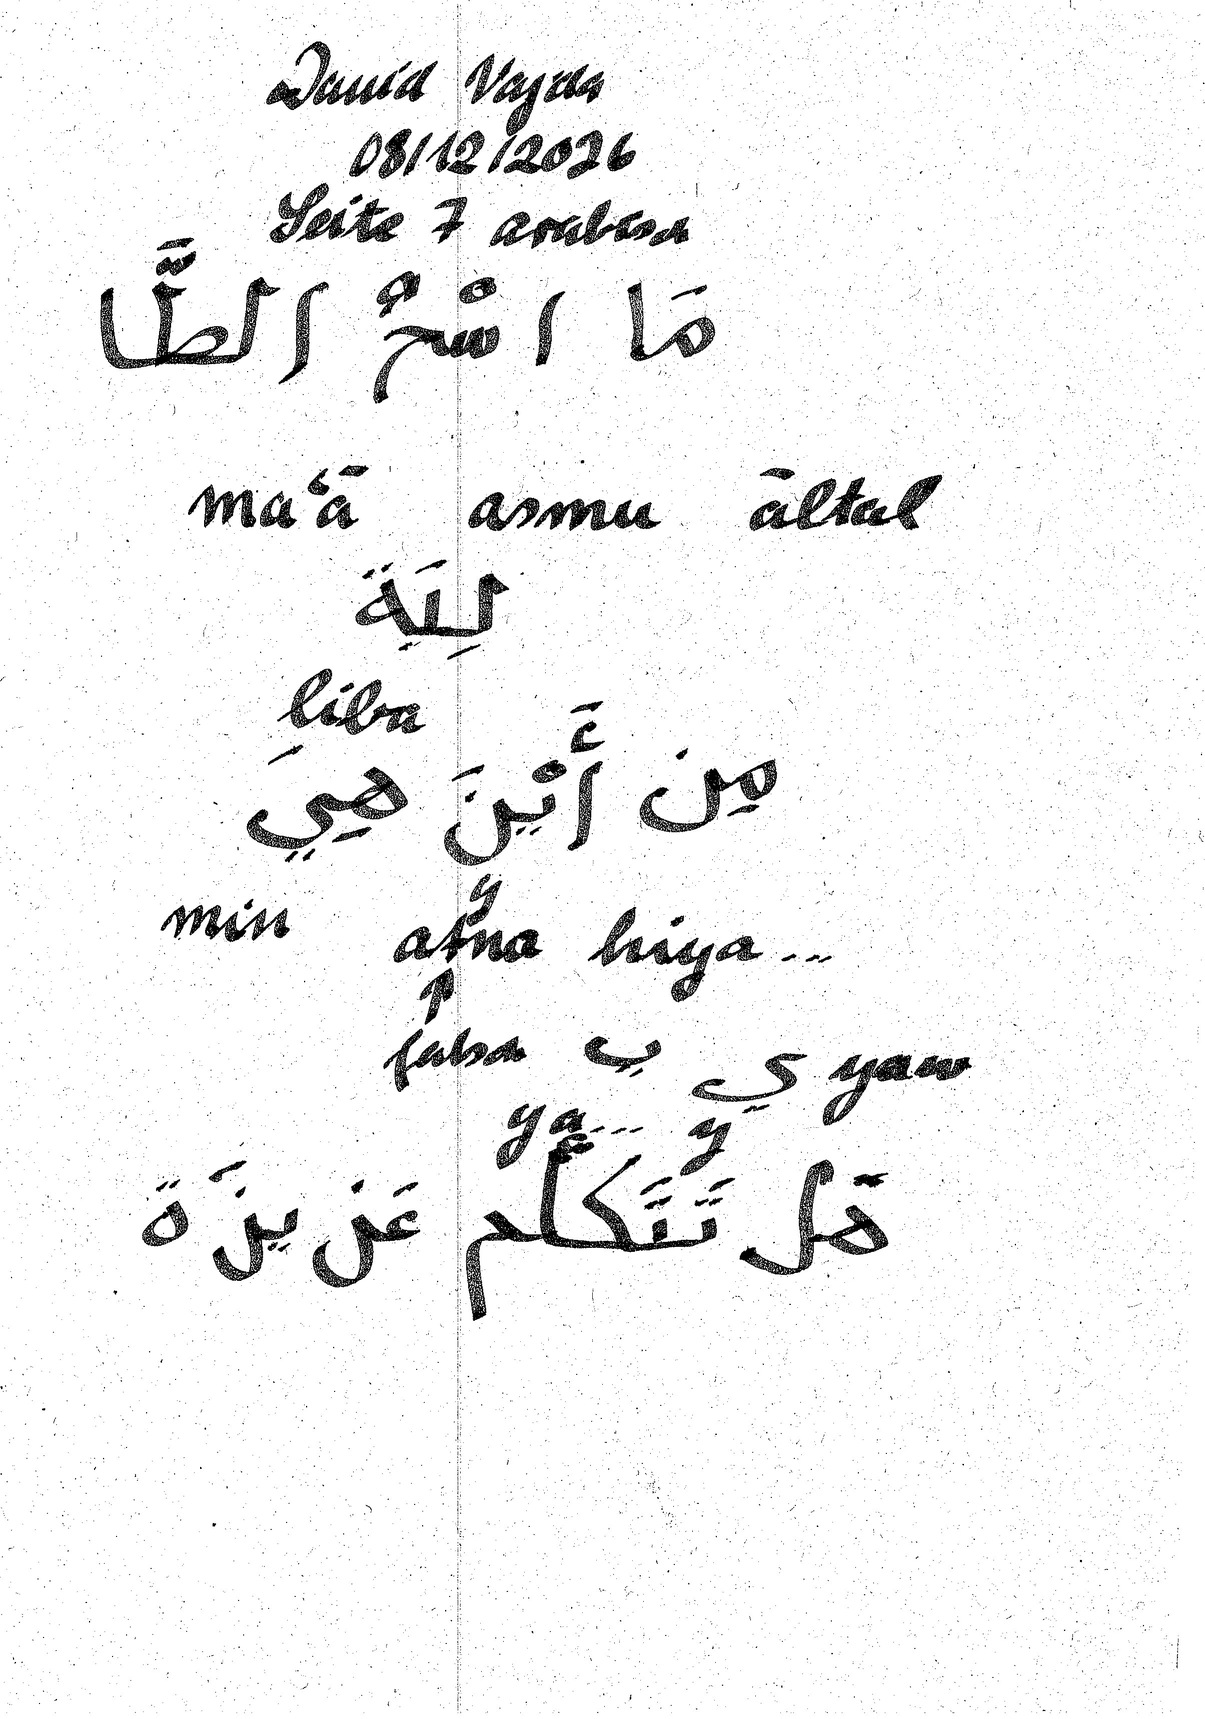 David Vajda
08/12/2026
Seite 7 arabisch
مَا اسْمُ الطَّا
ma'ā asmu āltal
لِبَة
liba
مِن أَيْنَ هِيَ
min ayna hiya...
falsch ب ي yaw
ya... y
هَل تَتَكلَّم عَزيزَة